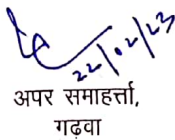 22/02/23
अपर समाहर्त्ता,
गढ़वा